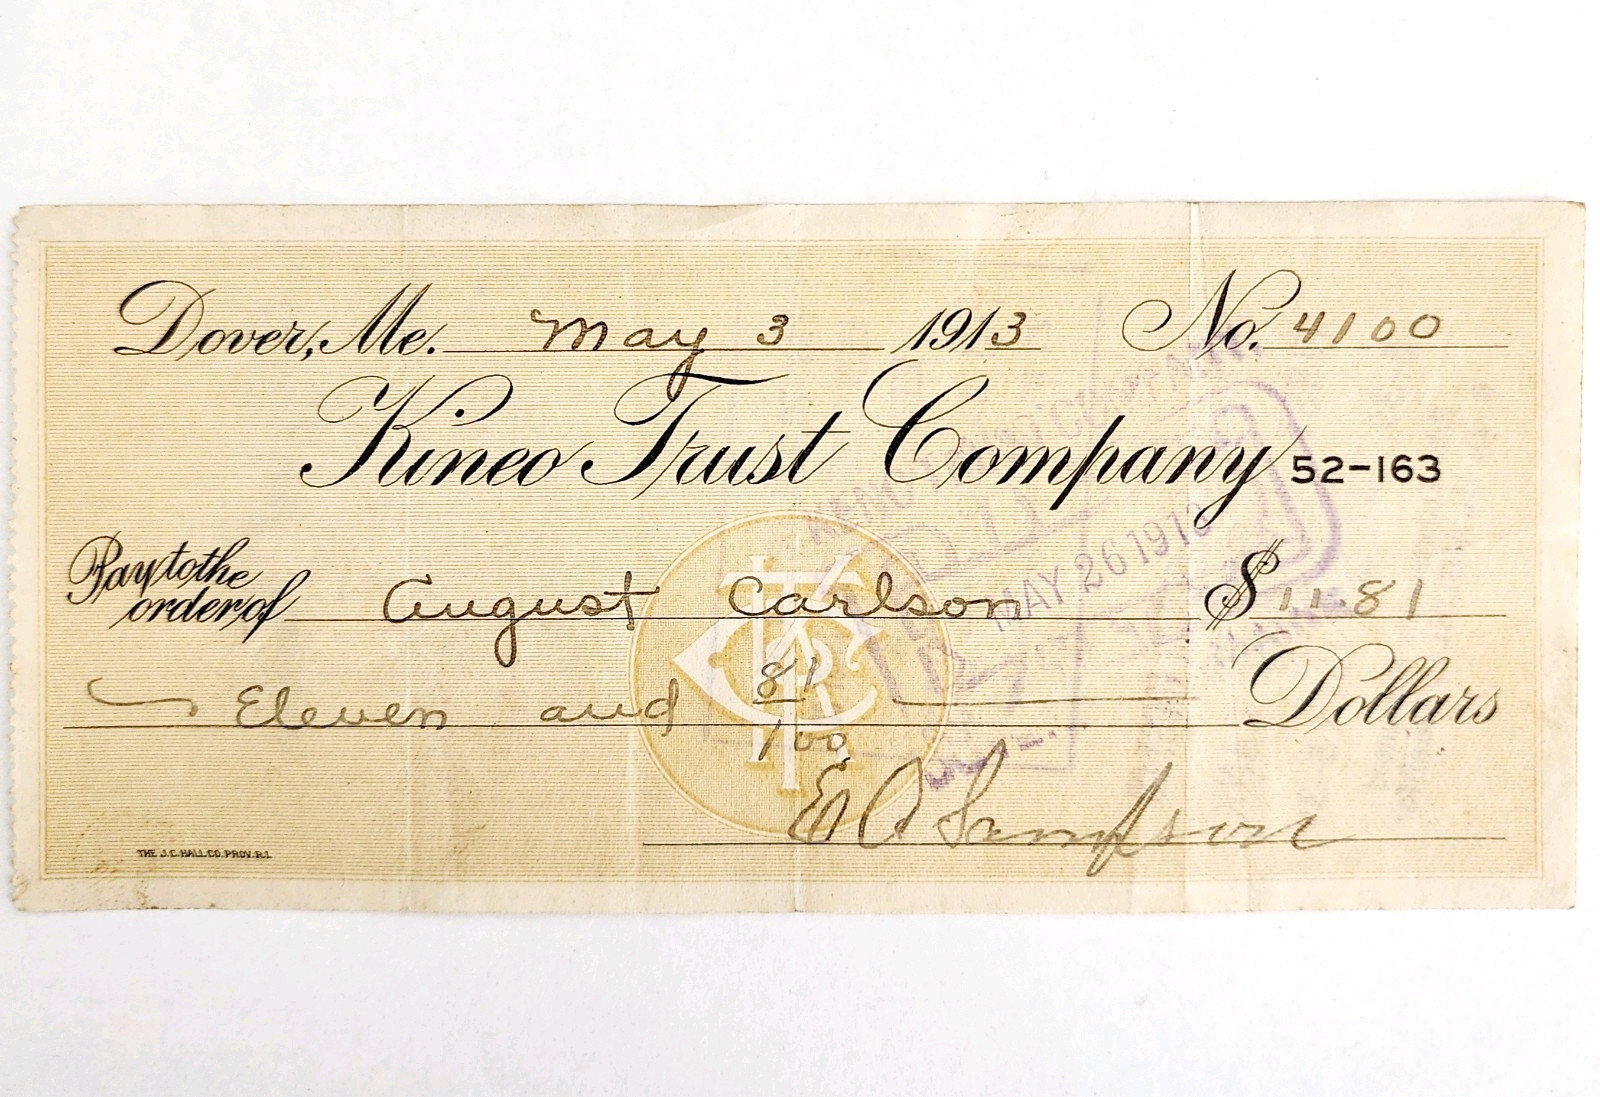 Dover, Me. May 3 1913 No. 4100
Kineo Trust Company 52-163
Pay to the
order of August Carlson $11.81
Eleven and 81/100 Dollars
E A Sampson
THE J.C. HALL CO. PROV. R.I.
MAY 26 1913